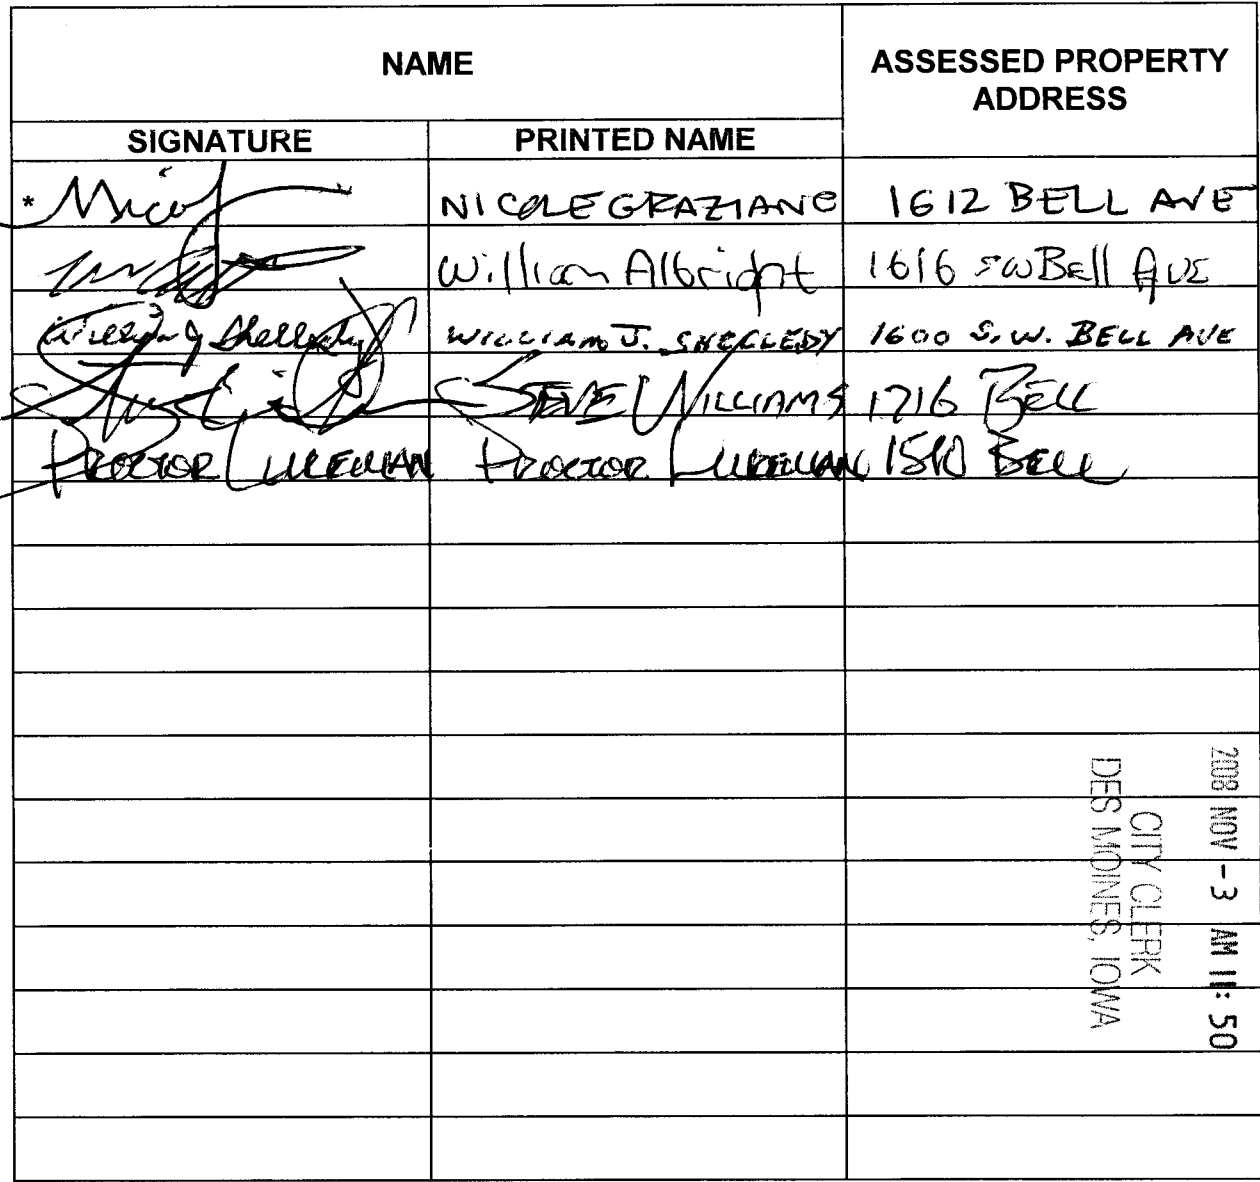 NAME
ASSESSED PROPERTY
ADDRESS
SIGNATURE PRINTED NAME
* NICOLE GRAZIANO 1612 BELL AVE
William Albright 1616 SW Bell Ave
William J Shelledy WILLIAM J. SHELLEDY 1600 S.W. BELL AVE
STEVE WILLIAMS 1716 BELL
PROCTOR PROCTOR BELL
2008 NOV -3 AM 11: 50
CITY CLERK
DES MOINES, IOWA